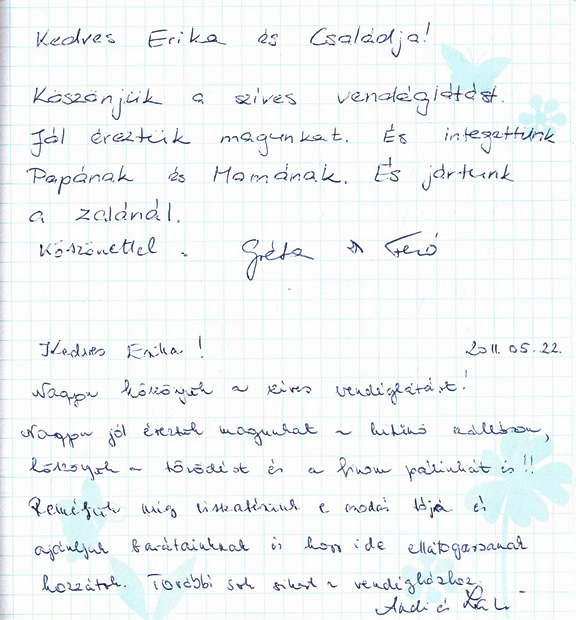 Kedves Erika és Családja!
Köszönjük a szíves vendéglátást.
Jól éreztük magunkat. És integettünk
Papának és Mamának. És jártunk
a zalánál.
Köszönettel
Gréta Feró
Kedves Erika!
2011. 05. 22.
Nagyon köszönjük a szíves vendéglátást!
Nagyon jól éreztük magunkat a kitünő szálláson,
köszönjük a törődést és a finom pálinkát is!!
Reméljük még visszatérünk e csodás tájra és
ajánljuk barátainknak is hogy ide ellátogassanak
hozzátok. További sok sikert a vendégházhoz
Andi és